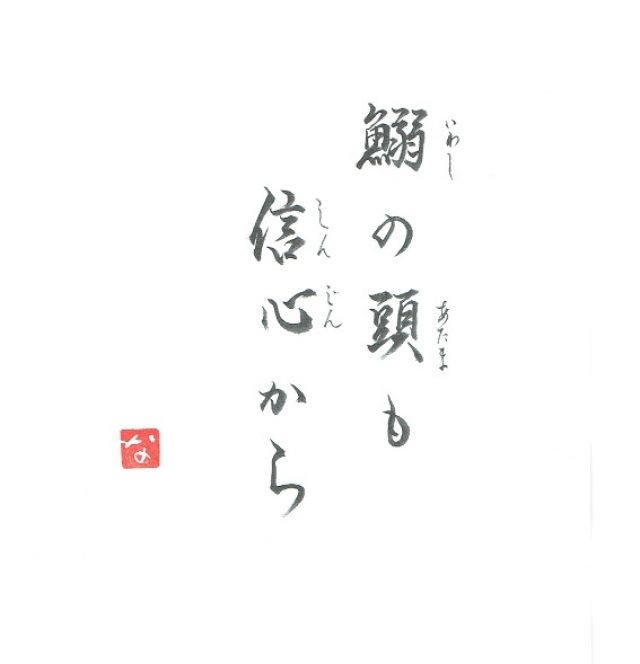 いわし あたま
鰯の頭も
しん じん
信心から
な